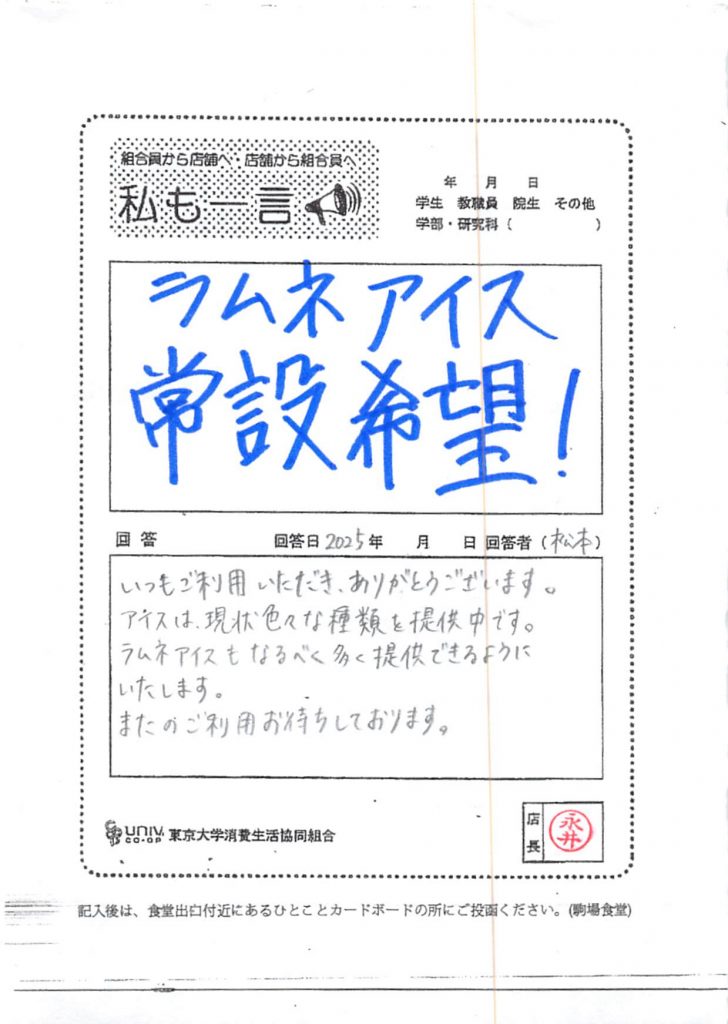 組合員から店舗へ・店舗から組合員へ
私も一言
年 月 日
学生 教職員 院生 その他
学部・研究科（ ）
ラムネアイス
常設希望！
回答 回答日2025年 月 日 回答者（松本）
いつもご利用いただき、ありがとうございます。
アイスは、現状色々な種類を提供中です。
ラムネアイスもなるべく多く提供できるように
いたします。
またのご利用お待ちしております。
UNIV. CO-OP 東京大学消費生活協同組合
店長 永井
記入後は、食堂出口付近にあるひとことカードボードの所にご投函ください。(駒場食堂)